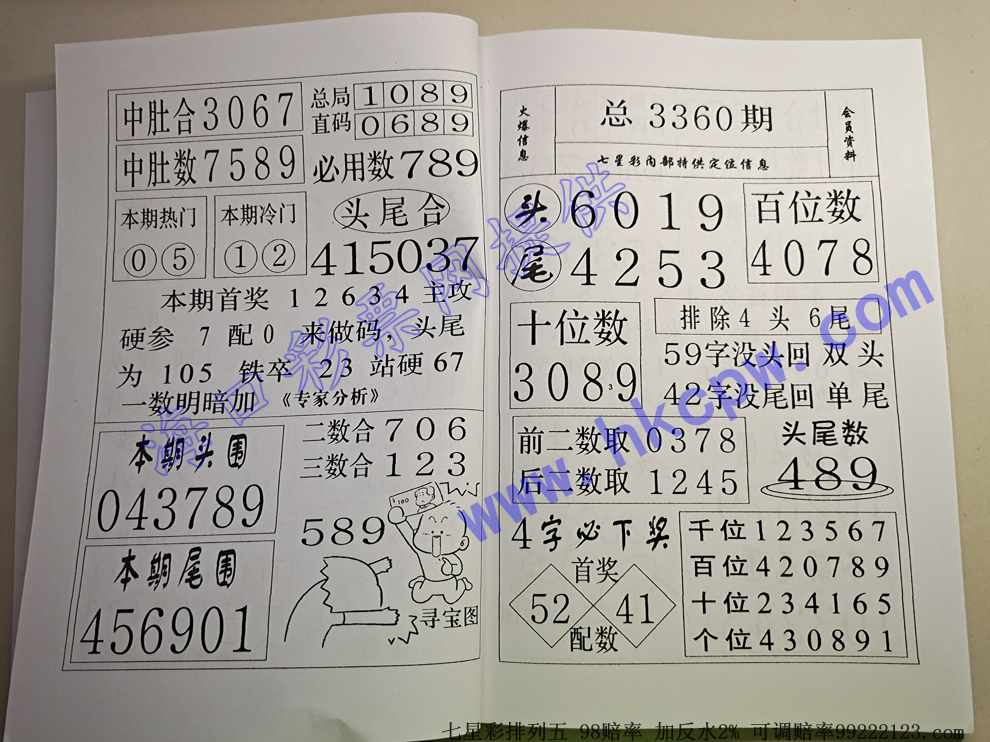 中肚合3067
总局 1089
直码 0689
中肚数7589
必用数789
本期热门
⓪⑤
本期冷门
①②
头尾合
415037
本期首奖 12634主攻
硬参 7 配0 来做码，头尾
为 105 铁卒 23 站硬67
一数明暗加 《专家分析》
本期头围
043789
二数合706
三数合123
589
寻宝图
本期尾围
456901
火爆信息
总 3360期
七星彩内部特供定位信息
会员资料
头 6019
尾 4253
百位数
4078
十位数
3089
排除4 头 6尾
59字没头回 双 头
42字没尾回 单 尾
前二数取 0378
后二数取 1245
头尾数
489
4字必下奖
首奖
52 41
配数
千位123567
百位420789
十位234165
个位430891
www.hkcpw.com
七星彩排列五 98赔率 加反水2% 可调赔率99222123.com